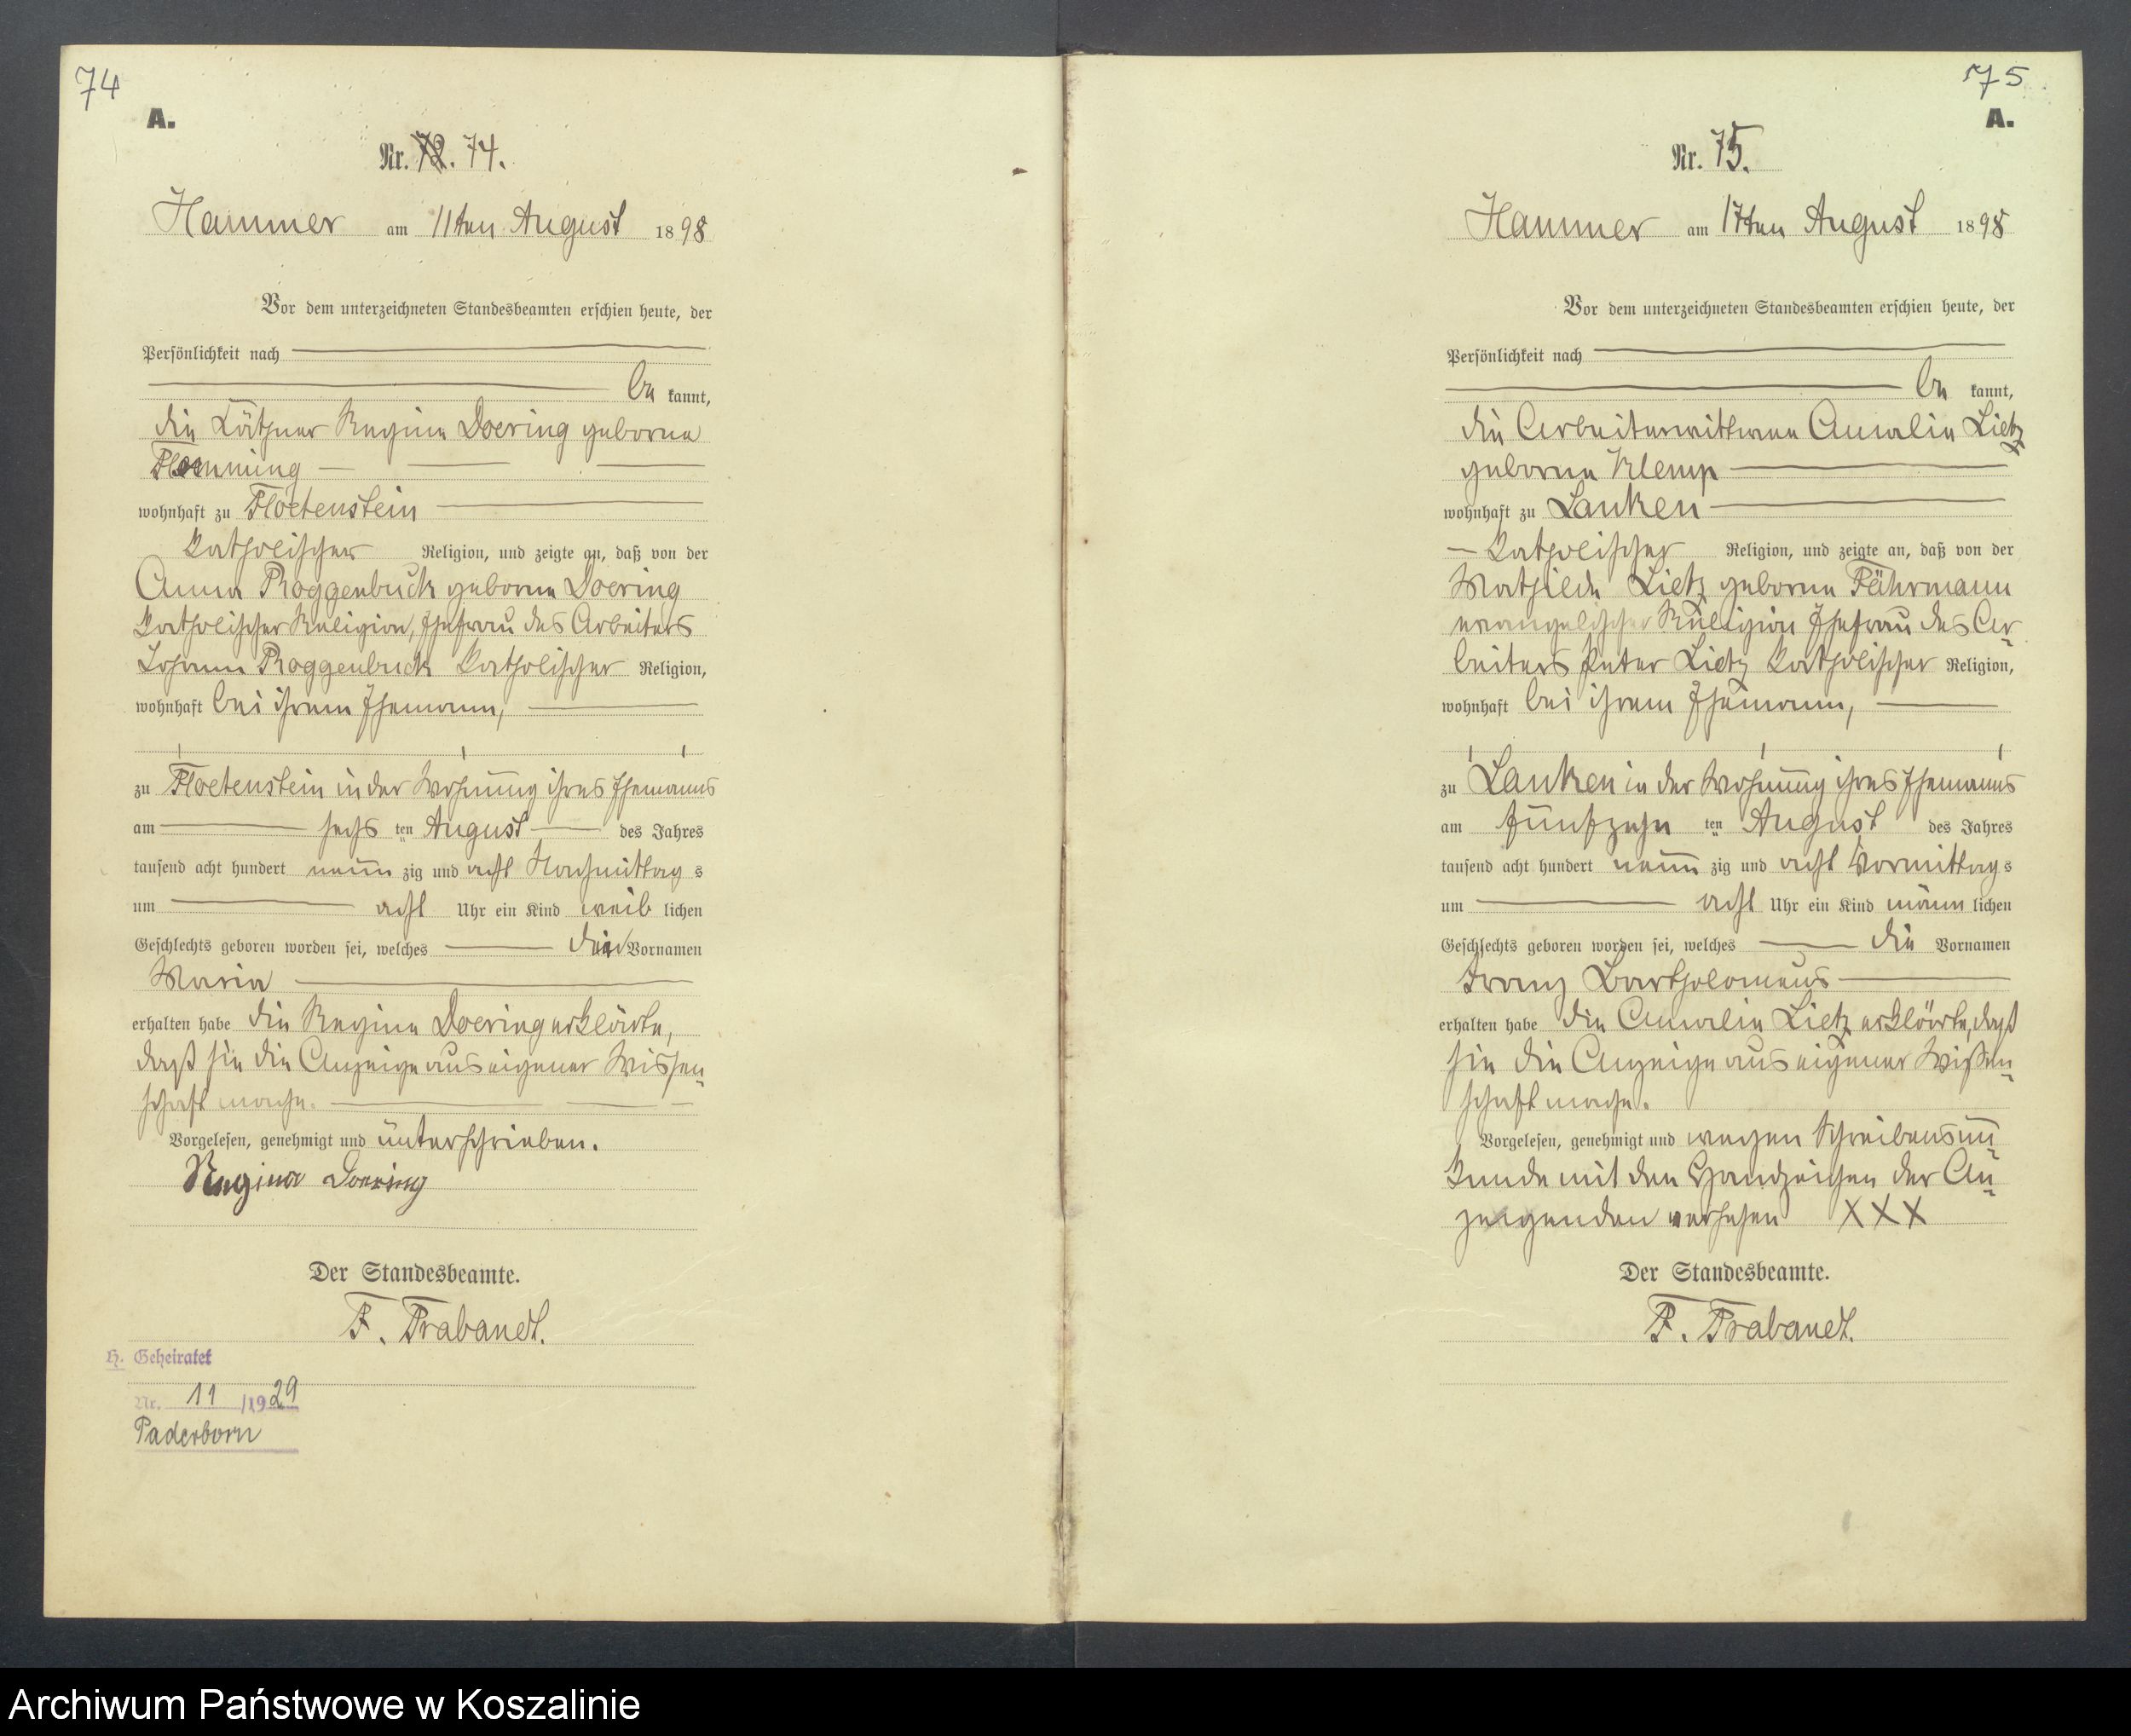 74
A.
Nr. 72. 74.
Hammer am 11ten August 1898
Vor dem unterzeichneten Standesbeamten erschien heute, der
Persönlichkeit nach
be kannt,
die Käthner Regine Doering geborne
Flemming
wohnhaft zu Floetenstein
katholischer Religion, und zeigte an, daß von der
Anna Roggenbuck geborne Doering
katholischer Religion, Ehefrau des Arbeiters
Johann Roggenbuck katholischer Religion,
wohnhaft bei ihrem Ehemann,
zu Floetenstein in der Wohnung ihres Ehemanns
am sechs ten August des Jahres
tausend acht hundert neun zig und acht Nachmittag s
um acht Uhr ein Kind weib lichen
Geschlechts geboren worden sei, welches den Vornamen
Maria
erhalten habe die Regine Doering erklärte,
daß sie die Anzeige aus eigener Wissen-
schaft mache.
Vorgelesen, genehmigt und unterschrieben.
Regina Doering
Der Standesbeamte.
F. Trabandt.
H. Geheiratet
Nr. 11 /1929
Paderborn
75
A.
Nr. 75.
Hammer am 17ten August 1898
Vor dem unterzeichneten Standesbeamten erschien heute, der
Persönlichkeit nach
be kannt,
die Arbeiterwittwe Amalie Lietz
geborne Klemp
wohnhaft zu Lanken
katholischer Religion, und zeigte an, daß von der
Mathilde Lietz geborne Fährmann
evangelischer Religion Ehefrau des Ar-
beiters Peter Lietz katholischer Religion,
wohnhaft bei ihrem Ehemann,
zu Lanken in der Wohnung ihres Ehemanns
am fünfzehn ten August des Jahres
tausend acht hundert neun zig und acht Vormittag s
um acht Uhr ein Kind männ lichen
Geschlechts geboren worden sei, welches die Vornamen
Franz Bartholomeus
erhalten habe die Amalie Lietz erklärte, daß
sie die Anzeige aus eigener Wissen-
schaft mache.
Vorgelesen, genehmigt und wegen Schreibensun-
kunde mit den Handzeichen der An-
zeigenden versehen XXX
Der Standesbeamte.
F. Trabandt.
Archiwum Państwowe w Koszalinie